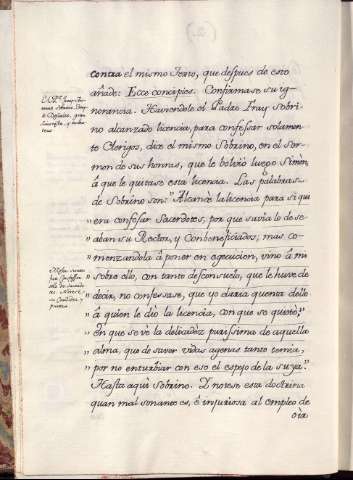 contra el mismo Texto, que despues de esto
añade: Ecce concipies. Confirmase su ig-
norancia. Haviendole el Padre Fray Sobri-
no alcanzado licencia, para confessar solamen-
te Clerigos, dice el mismo Sobrino, en el ser-
mon de sus honras, que le bolvió luego Simon,
á que le quitase esta licencia. Las palabras
de Sobrino son: "Alcancè la licencia para si qui-
" era confesar Sacerdotes, por que savia lo dese-
" aban su Rector, y Conbeneficiados, mas co-
" menzandola á poner en egecucion, vino á mi
" sobre ello, con tanto desconsuelo, que le huve de
" decir, no confesase, que yo daria quenta dello
" á quien le dio la licencia, con que se quietó,"
" En que se vè la delicadèz purissima de aquella
" alma, que de saver vidas agenas tanto temia,
" por no enturbiar con eso el espejo de la suya."
Hasta aqui Sobrino. I notese esta doctrina
quan mal sonante es, è injuriosa al empleo de
oìr